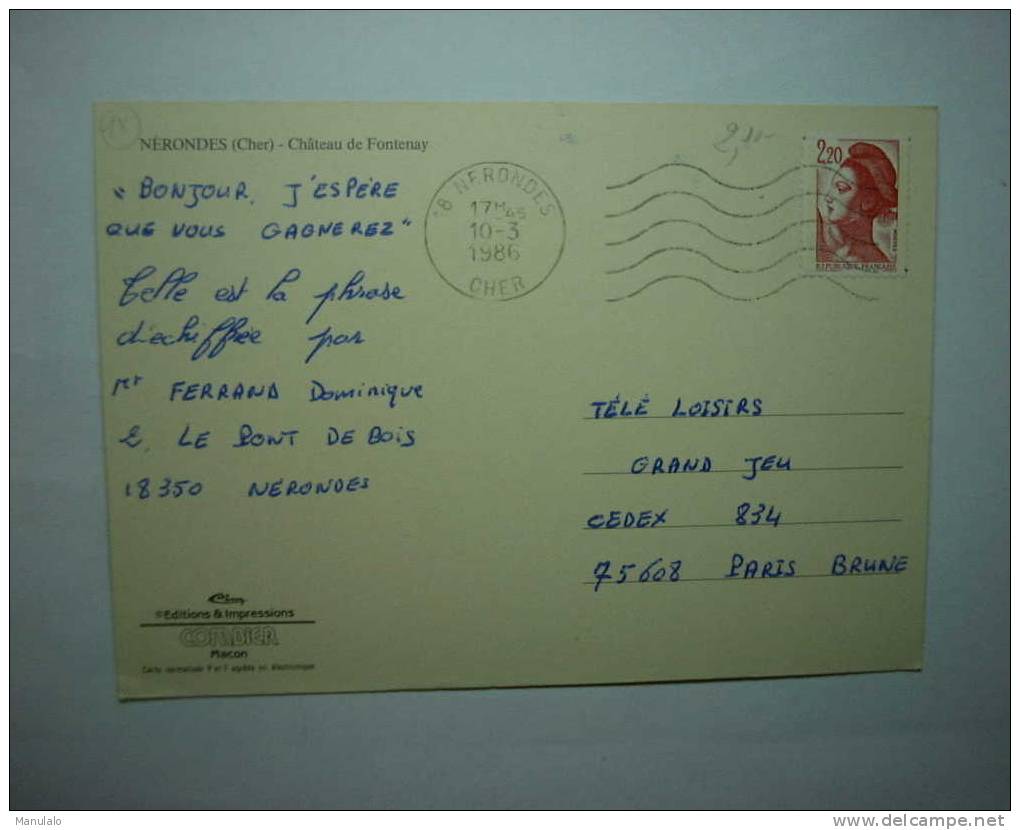 NÉRONDES (Cher) - Château de Fontenay
"BONJOUR, J'ESPÈRE
QUE VOUS GAGNEREZ"
Telle est la phrase
déchiffrée par
Mr FERRAND Dominique
2, LE PONT DE BOIS
18350 NÉRONDES
18 NERONDES
17H45
10-3
1986
CHER
2,20
REPUBLIQUE FRANÇAISE
TÉLÉ LOISIRS
GRAND JEU
CEDEX 834
75608 PARIS BRUNE
Cim
©Editions & Impressions
COMBIER
Macon
Manulalo
delcampe.net